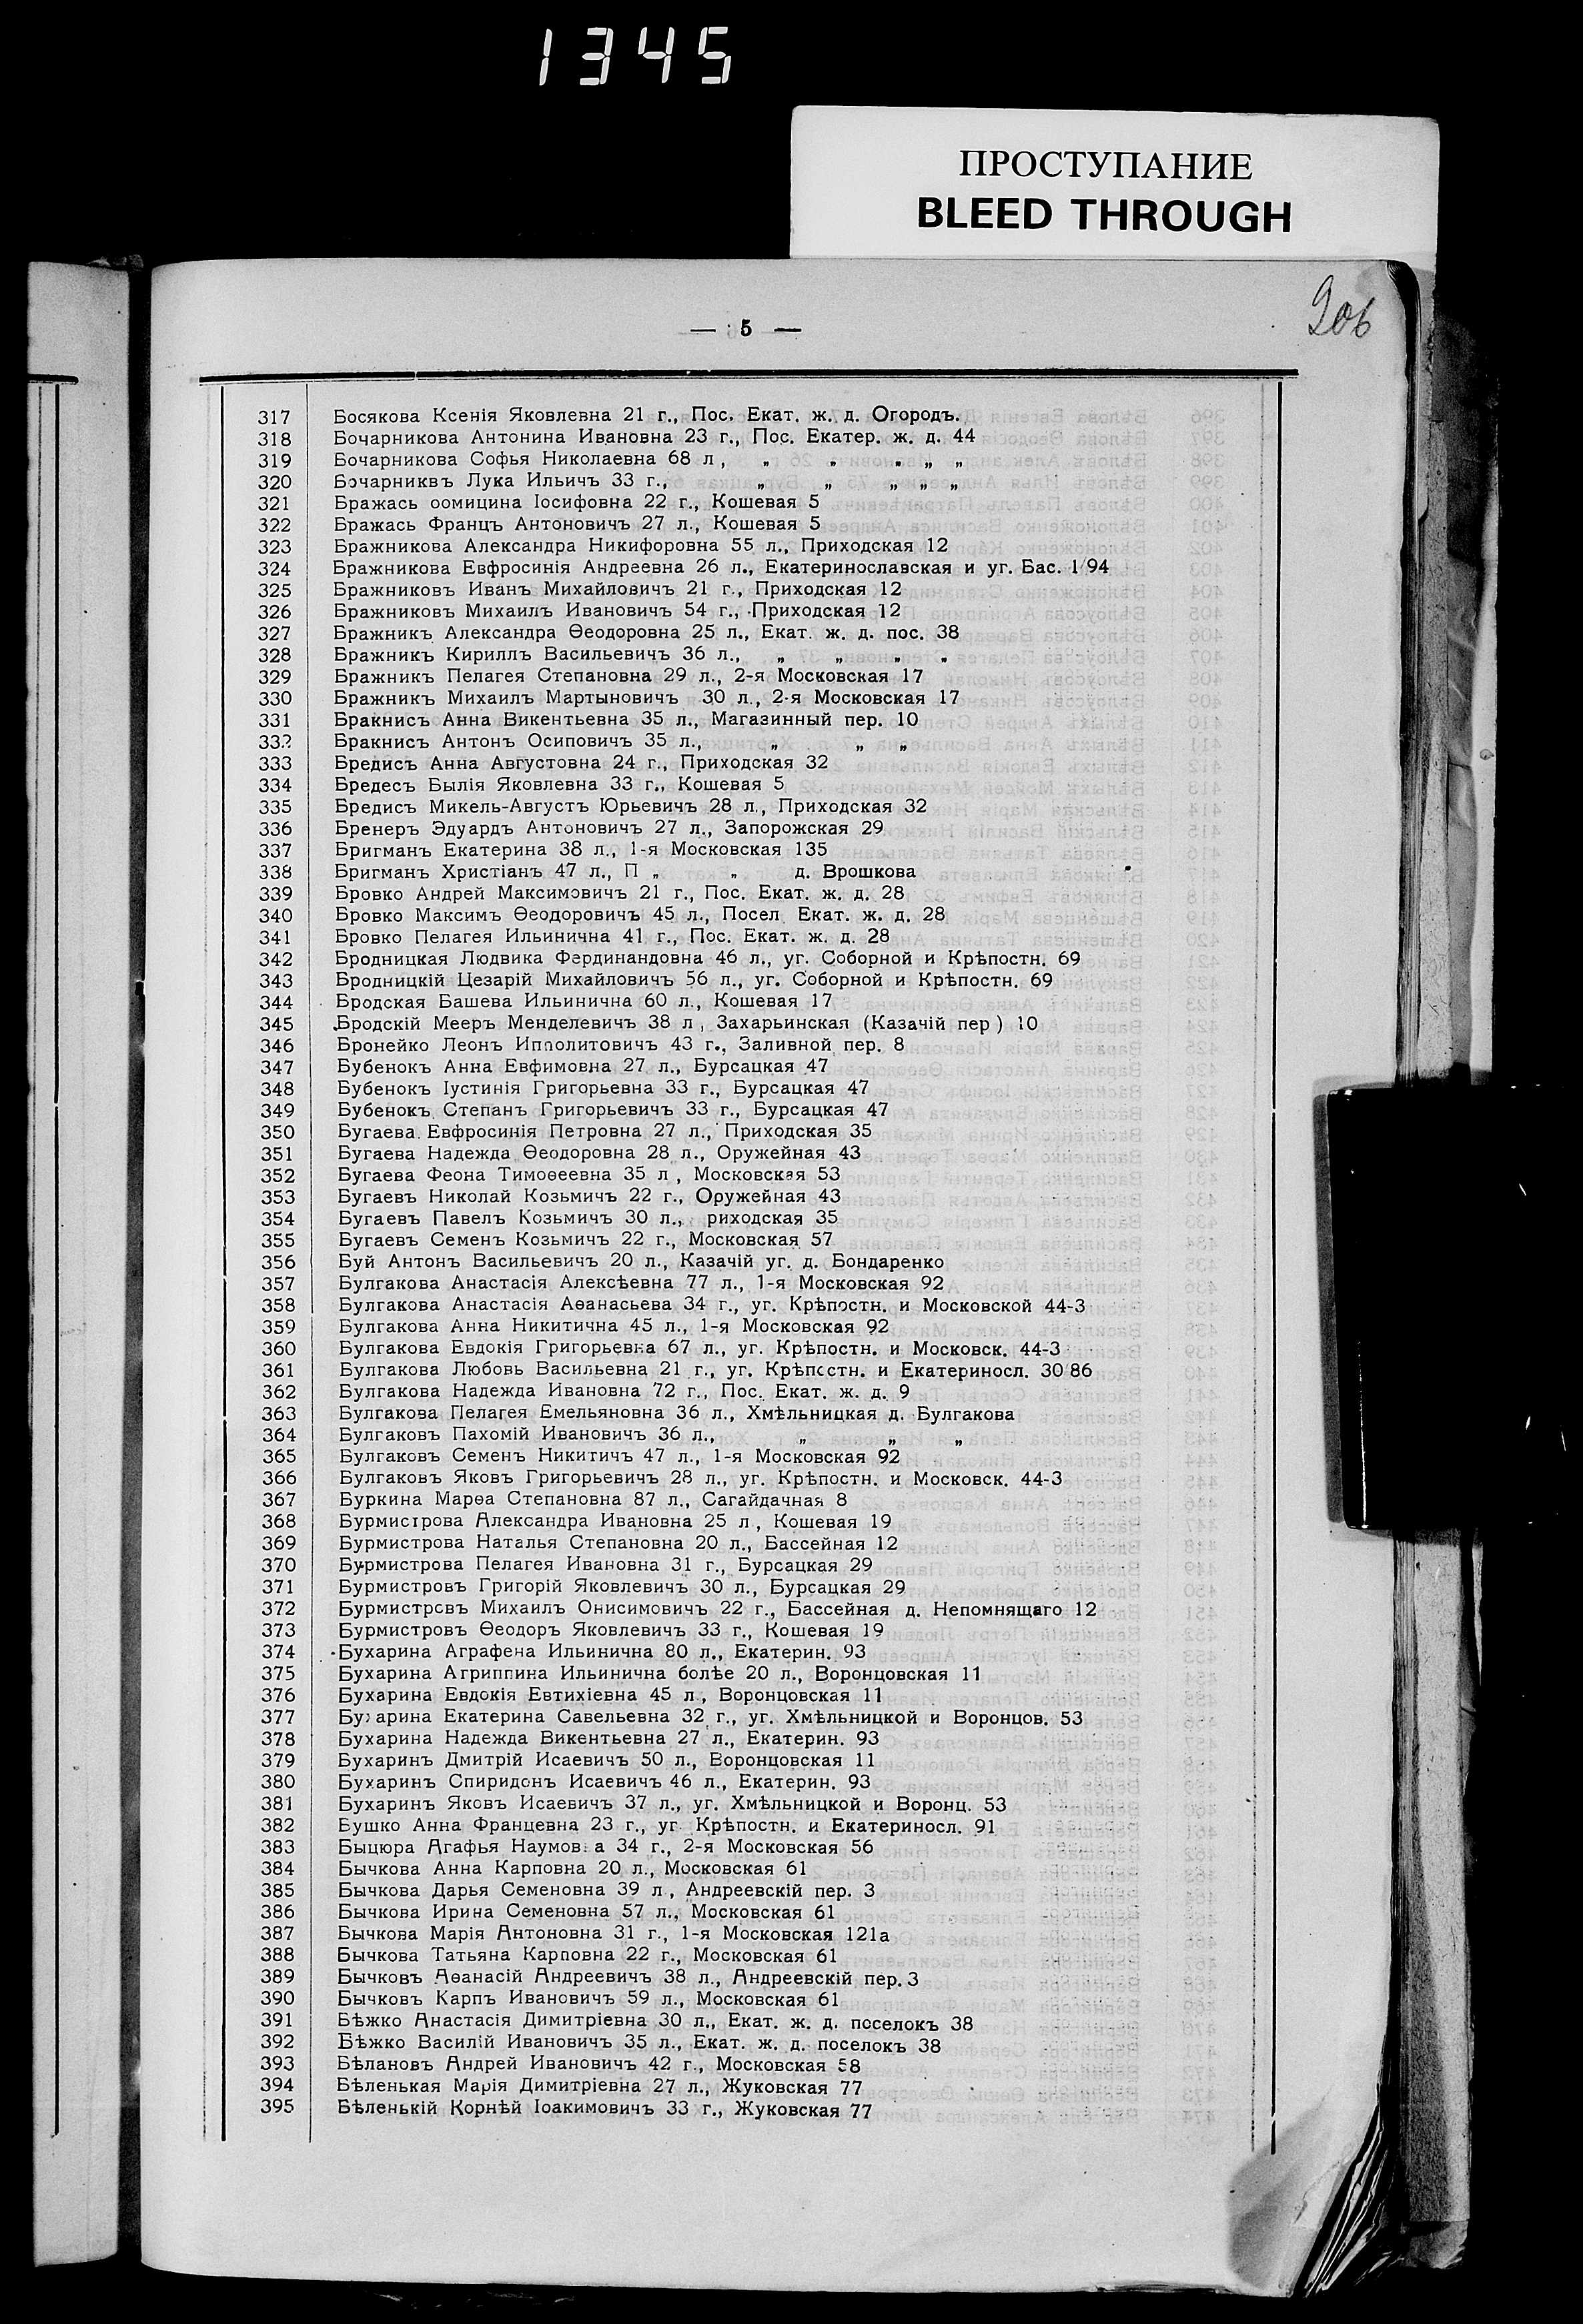 1345
ПРОСТУПАНИЕ
BLEED THROUGH
206
— 5 —
317 Босякова Ксенія Яковлевна 21 г., Пос. Екат. ж. д. Огородъ.
318 Бочарникова Антонина Ивановна 23 г., Пос. Екатер. ж. д. 44
319 Бочарникова Софья Николаевна 68 л , „ „ „ „ „
320 Бочарниквъ Лука Ильичъ 33 г., „ „ „ „ „
321 Бражась оомицина Іосифовна 22 г., Кошевая 5
322 Бражась Францъ Антоновичъ 27 л., Кошевая 5
323 Бражникова Александра Никифоровна 55 л., Приходская 12
324 Бражникова Евфросинія Андреевна 26 л., Екатеринославская и уг. Бас. 1/94
325 Бражниковъ Иванъ Михайловичъ 21 г., Приходская 12
326 Бражниковъ Михаилъ Ивановичъ 54 г., Приходская 12
327 Бражникъ Александра Ѳеодоровна 25 л., Екат. ж. д. пос. 38
328 Бражникъ Кириллъ Васильевичъ 36 л., „ „ „ „
329 Бражникъ Пелагея Степановна 29 л., 2-я Московская 17
330 Бражникъ Михаилъ Мартыновичъ 30 л., 2-я Московская 17
331 Бракнисъ Анна Викентьевна 35 л., Магазинный пер. 10
332 Бракнисъ Антонъ Осиповичъ 35 л., „ „ „
333 Бредисъ Анна Августовна 24 г., Приходская 32
334 Бредесъ Былія Яковлевна 33 г., Кошевая 5
335 Бредисъ Микель-Августъ Юрьевичъ 28 л., Приходская 32
336 Бренеръ Эдуардъ Антоновичъ 27 л., Запорожская 29
337 Бригманъ Екатерина 38 л., 1-я Московская 135
338 Бригманъ Христіанъ 47 л., П „ „ д. Врошкова
339 Бровко Андрей Максимовичъ 21 г., Пос. Екат. ж. д. 28
340 Бровко Максимъ Ѳеодоровичъ 45 л., Посел. Екат. ж. д. 28
341 Бровко Пелагея Ильинична 41 г., Пос. Екат. ж. д. 28
342 Бродницкая Людвика Фердинандовна 46 л., уг. Соборной и Крѣпостн. 69
343 Бродницкій Цезарій Михайловичъ 56 л., уг. Соборной и Крѣпостн. 69
344 Бродская Башева Ильинична 60 л., Кошевая 17
345 Бродскій Мееръ Менделевичъ 38 л , Захарьинская (Казачій пер ) 10
346 Бронейко Леонъ Ипполитовичъ 43 г., Заливной пер. 8
347 Бубенокъ Анна Евфимовна 27 л., Бурсацкая 47
348 Бубенокъ Іустинія Григорьевна 33 г., Бурсацкая 47
349 Бубенокъ Степанъ Григорьевичъ 33 г., Бурсацкая 47
350 Бугаева Евфросинія Петровна 27 л., Приходская 35
351 Бугаева Надежда Ѳеодоровна 28 л., Оружейная 43
352 Бугаева Феона Тимоѳеевна 35 л , Московская 53
353 Бугаевъ Николай Козьмичъ 22 г., Оружейная 43
354 Бугаевъ Павелъ Козьмичъ 30 л., риходская 35
355 Бугаевъ Семенъ Козьмичъ 22 г., Московская 57
356 Буй Антонъ Васильевичъ 20 л., Казачій уг. д. Бондаренко
357 Булгакова Анастасія Алексѣевна 77 л., 1-я Московская 92
358 Булгакова Анастасія Аѳанасьева 34 г., уг. Крѣпостн. и Московской 44-3
359 Булгакова Анна Никитична 45 л., 1-я Московская 92
360 Булгакова Евдокія Григорьевна 67 л., уг. Крѣпостн. и Московск. 44-3
361 Булгакова Любовь Васильевна 21 г., уг. Крѣпостн. и Екатериносл. 30/86
362 Булгакова Надежда Ивановна 72 г., Пос. Екат. ж. д. 9
363 Булгакова Пелагея Емельяновна 36 л., Хмѣльницкая д. Булгакова
364 Булгаковъ Пахомій Ивановичъ 36 л., „ „ „
365 Булгаковъ Семенъ Никитичъ 47 л., 1-я Московская 92
366 Булгаковъ Яковъ Григорьевичъ 28 л., уг. Крѣпостн. и Московск. 44-3
367 Буркина Марѳа Степановна 87 л., Сагайдачная 8
368 Бурмистрова Александра Ивановна 25 л., Кошевая 19
369 Бурмистрова Наталья Степановна 20 л., Бассейная 12
370 Бурмистрова Пелагея Ивановна 31 г., Бурсацкая 29
371 Бурмистровъ Григорій Яковлевичъ 30 л., Бурсацкая 29
372 Бурмистровъ Михаилъ Онисимовичъ 22 г., Бассейная д. Непомнящаго 12
373 Бурмистровъ Ѳеодоръ Яковлевичъ 33 г., Кошевая 19
374 Бухарина Аграфена Ильинична 80 л., Екатерин. 93
375 Бухарина Агриппина Ильинична болѣе 20 л., Воронцовская 11
376 Бухарина Евдокія Евтихіевна 45 л., Воронцовская 11
377 Бухарина Екатерина Савельевна 32 г., уг. Хмѣльницкой и Воронцов. 53
378 Бухарина Надежда Викентьевна 27 л., Екатерин. 93
379 Бухаринъ Дмитрій Исаевичъ 50 л., Воронцовская 11
380 Бухаринъ Спиридонъ Исаевичъ 46 л., Екатерин. 93
381 Бухаринъ Яковъ Исаевичъ 37 л., уг. Хмѣльницкой и Воронц. 53
382 Бушко Анна Францевна 23 г., уг. Крѣпостн. и Екатериносл. 91
383 Быцюра Агафья Наумовна 34 г., 2-я Московская 56
384 Бычкова Анна Карповна 20 л., Московская 61
385 Бычкова Дарья Семеновна 39 л., Андреевскій пер. 3
386 Бычкова Ирина Семеновна 57 л., Московская 61
387 Бычкова Марія Антоновна 31 г., 1-я Московская 121а
388 Бычкова Татьяна Карповна 22 г., Московская 61
389 Бычковъ Аѳанасій Андреевичъ 38 л., Андреевскій пер. 3
390 Бычковъ Карпъ Ивановичъ 59 л., Московская 61
391 Бѣжко Анастасія Димитріевна 30 л., Екат. ж. д. поселокъ 38
392 Бѣжко Василій Ивановичъ 35 л., Екат. ж. д. поселокъ 38
393 Бѣлановъ Андрей Ивановичъ 42 г., Московская 58
394 Бѣленькая Марія Димитріевна 27 л., Жуковская 77
395 Бѣленькій Корнѣй Іоакимовичъ 33 г., Жуковская 77